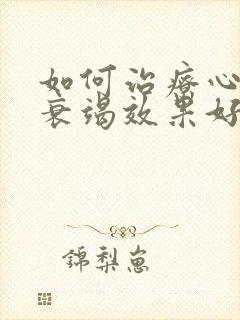 如何治疗心
衰竭效果好
錦梨崽